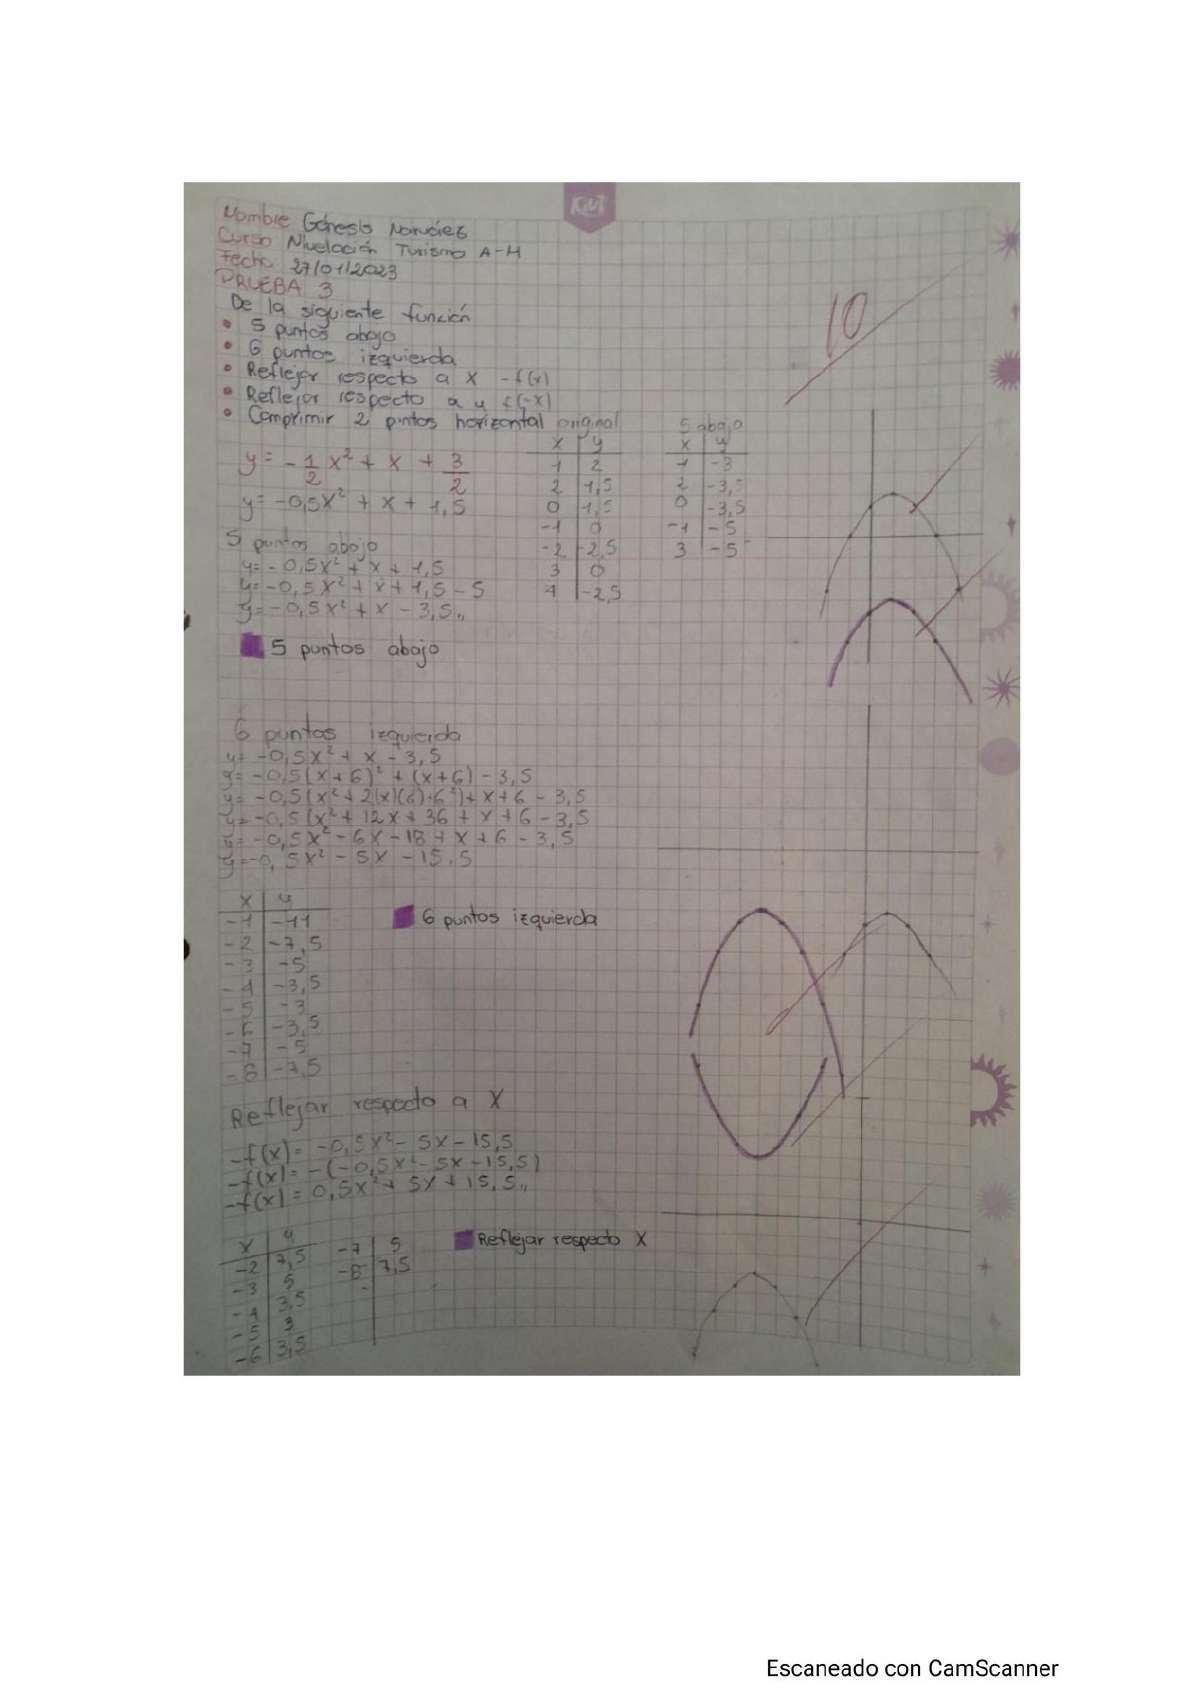 KIUT
Nombre Génesis Narváez
Curso Nivelación Turismo A-M
Fecha 27/01/2023
PRUEBA 3
De la siguiente función
• 5 puntos abajo
• 6 puntos izquierda
• Reflejar respecto a X -f(x)
• Reflejar respecto a y f(-x)
• Comprimir 2 puntos horizontal
10
y = -1/2 x² + x + 3/2
y = -0,5x² + x + 1,5
original
x | y
1 | 2
2 | 1,5
0 | 1,5
-1 | 0
-2 | -2,5
3 | 0
4 | -2,5
5 abajo
x | y
1 | -3
2 | -3,5
0 | -3,5
-1 | -5
3 | -5
5 puntos abajo
y = -0,5x² + x + 1,5
y = -0,5x² + x + 1,5 - 5
y = -0,5x² + x - 3,5,,
5 puntos abajo
6 puntos izquierda
y = -0,5x² + x - 3,5
y = -0,5(x+6)² + (x+6) - 3,5
y = -0,5(x² + 2(x)(6)+6²)+ x + 6 - 3,5
y = -0,5(x² + 12x + 36 + x + 6 - 3,5
y = -0,5x² - 6x - 18 + x + 6 - 3,5
y = -0,5x² - 5x - 15,5
x | y
-1 | -11
-2 | -7,5
-3 | -5
-4 | -3,5
-5 | -3
-6 | -3,5
-7 | -5
-8 | -7,5
6 puntos izquierda
Reflejar respecto a X
-f(x) = -0,5x² - 5x - 15,5
-f(x) = -(-0,5x² - 5x - 15,5)
-f(x) = 0,5x² + 5x + 15,5,,
x | y
-2 | 7,5
-3 | 5
-4 | 3,5
-5 | 3
-6 | 3,5
-7 | 5
-8 | 7,5
Reflejar respecto X
Escaneado con CamScanner